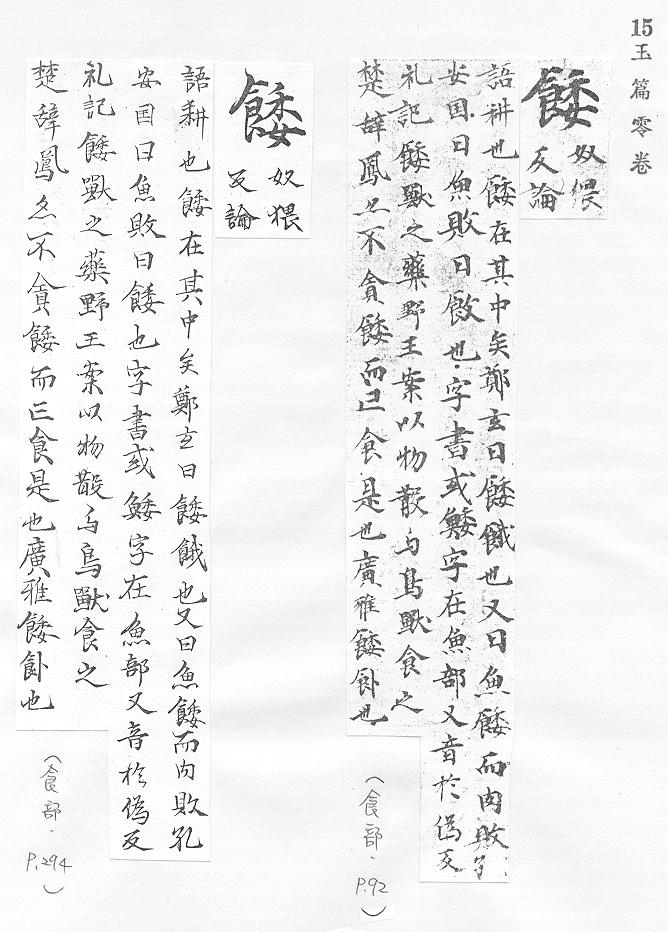 15玉篇零卷
餧
奴猥
反論
語耕也餧在其中矣鄭玄曰餧餓也又曰魚餧而肉敗
安国曰魚敗曰也字書或鯘字在魚部又音於偽反
礼記餧獸之藥野王案以物散与鳥獸食之
楚辞鳳不貪餧而食是也廣雅餧飤也
(食部.P.92)
餧
奴猥
反論
語耕也餧在其中矣鄭玄曰餧餓也又曰魚餧而肉敗孔
安国曰魚敗曰餧也字書或鯘字在魚部又音於偽反
礼記餧獸之藥野王案以物散与鳥獸食之
楚辞鳳不貪餧而食是也廣雅餧飤也
(食部.P.294)